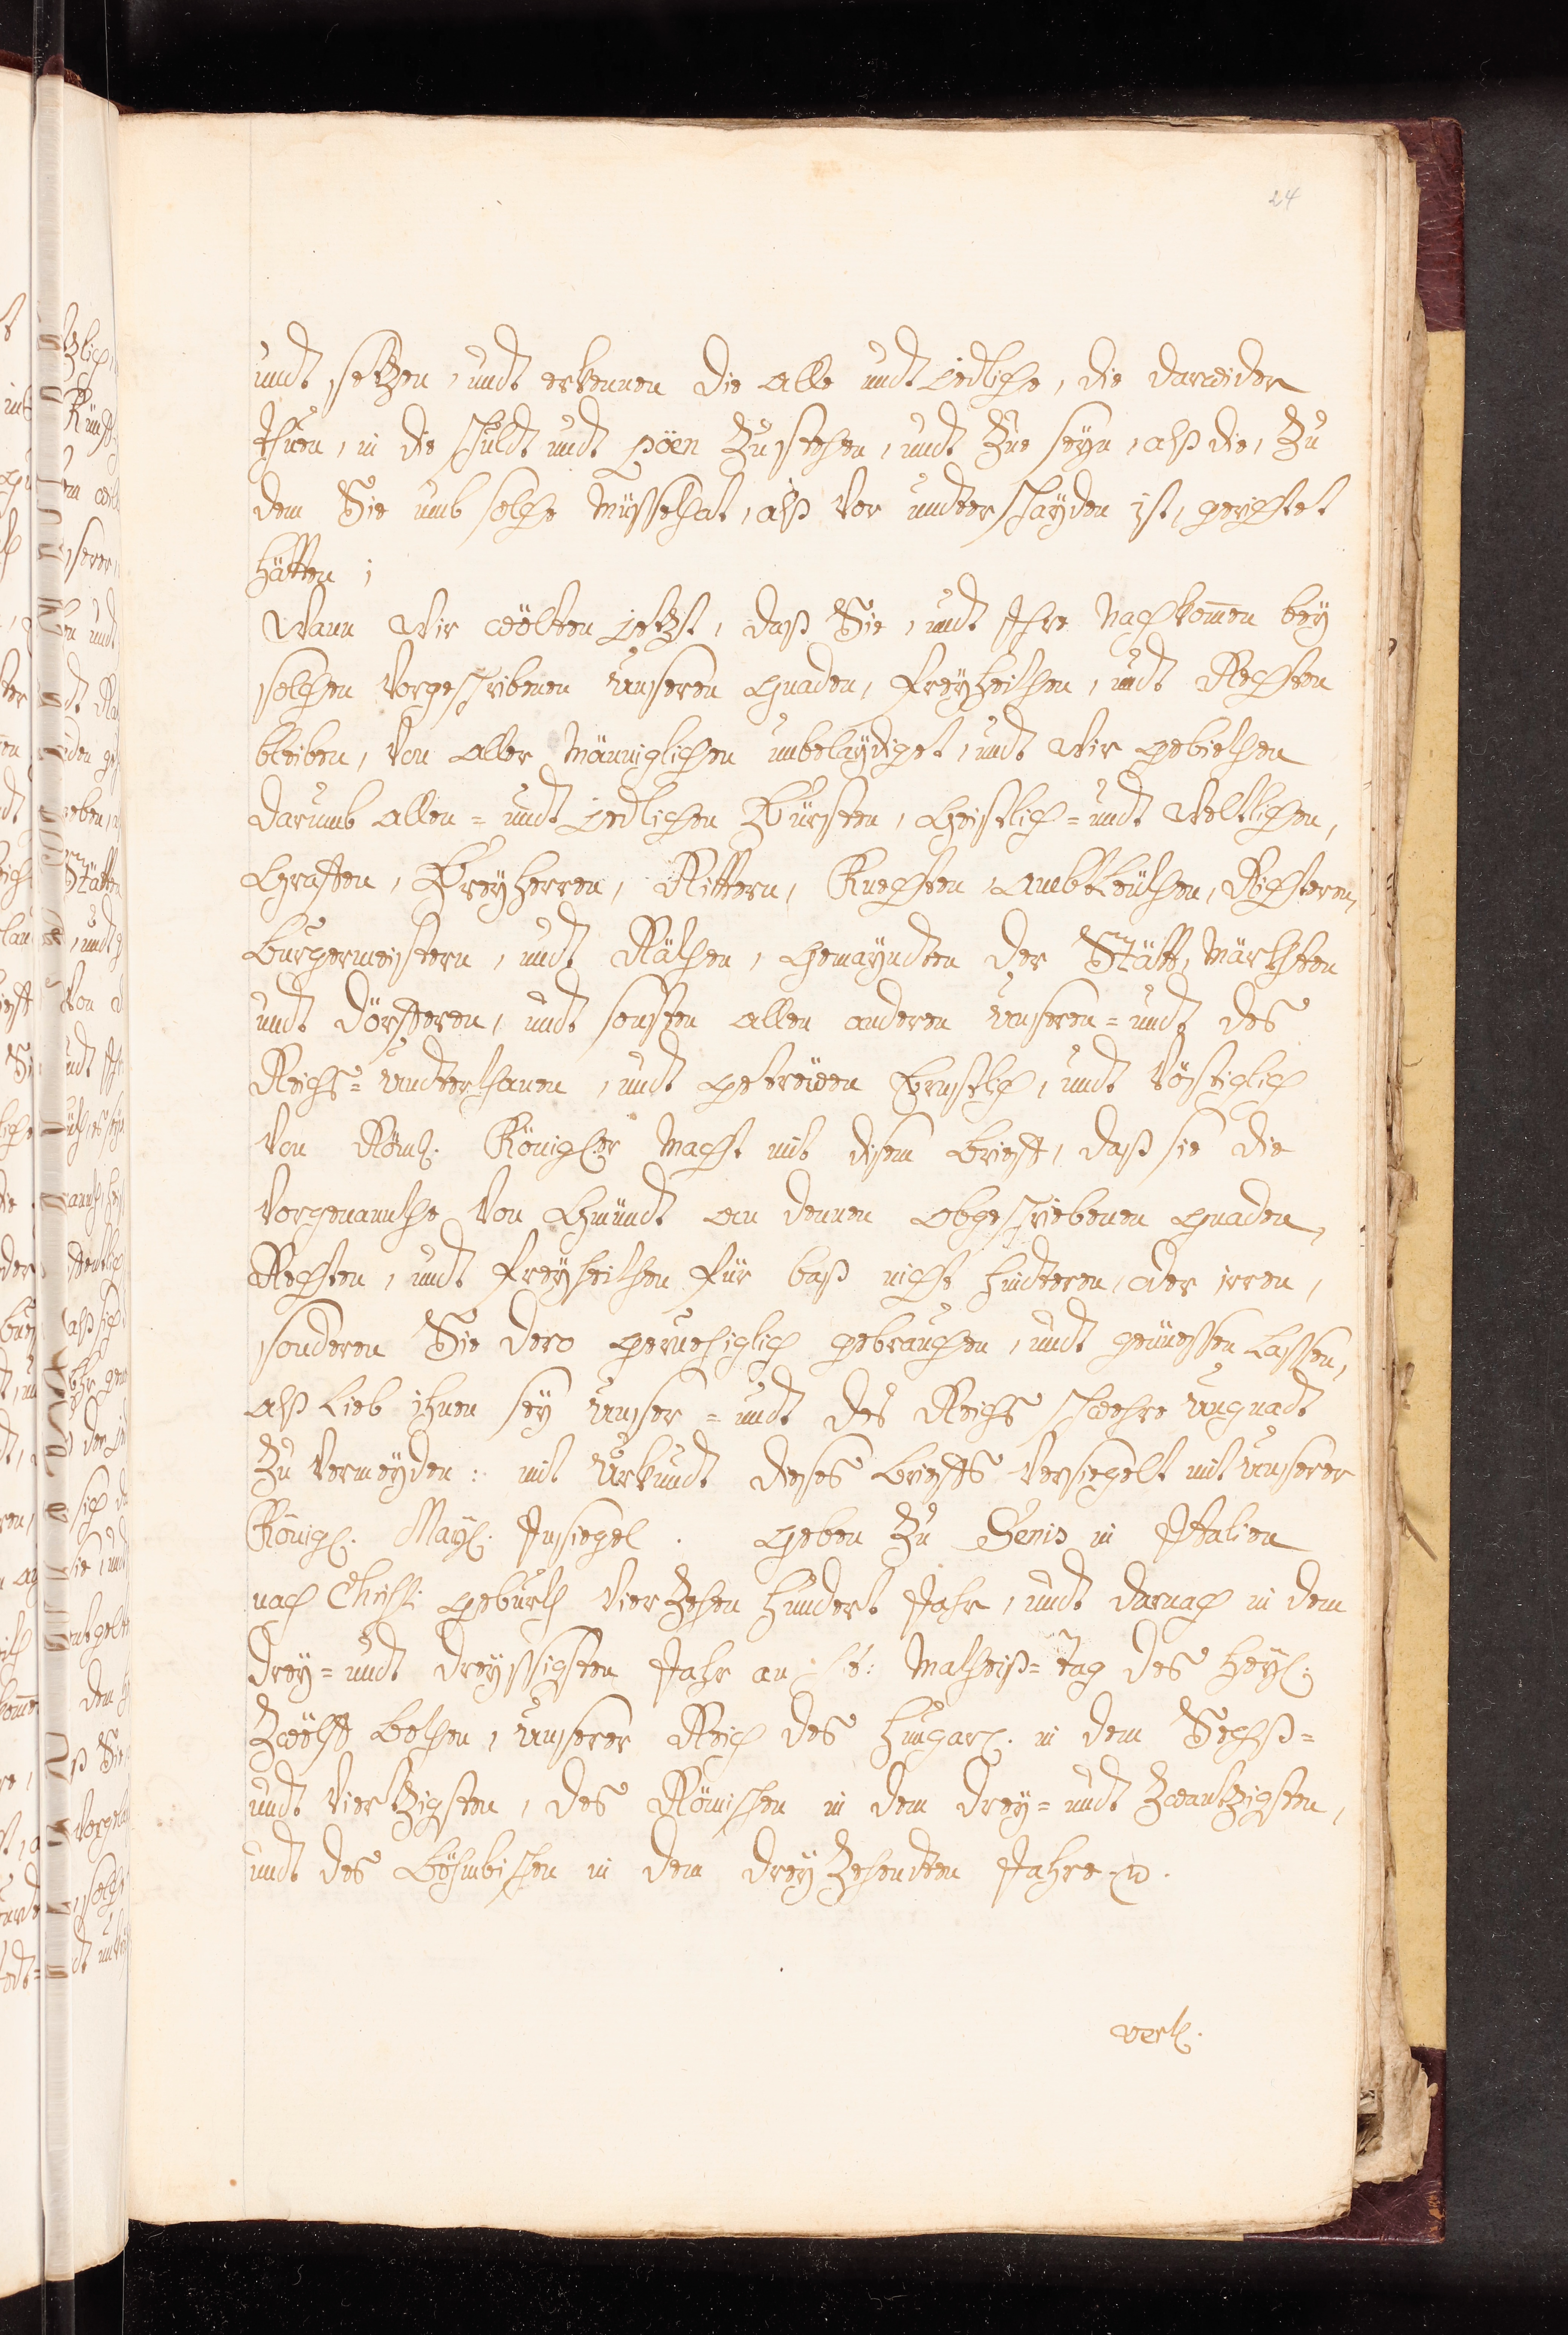 24
undt setzen, undt erkennen die alle undt jedliche, die darwider
thuen, in die schuldt undt pöen zu stehen, undt zue seyn, alß die, zu
dem Sie umb solche Müssethat, alß vor undterschayden ist, gerichtet
hätten;
Wann Wir wölten jetzt, daß Sie, undt Ihre Nachkom̄en bey
solchen vorgeschribenen Unseren gnaden, freyheithen, undt Rechten
bleiben, von aller Männiglichen unbelaydiget, undt Wir gebiethen
darumb allen= undt jedlichen Fürsten, Geistlich= undt Weltlichen,
Graffen, Freyherren, Rittern, Knechten, ambtleüthen, Richteren,
burgermeistern, undt Räthen, gemayndten der Stätt, Märckhten
undt dörfferen, undt sonsten allen anderen Unseren= undt des
Reichs= Undterthanen, undt getreüen Ernstlich, undt vöstiglich
von Röml. Königl:er Macht mit disem brieff, daß sie die
vorgenannthe von Gmündt an dennen obgeschriebenen gnaden,
Rechten, undt freyheithen für baß nicht hinderen, oder irren,
sonderen Sie dero geruehiglich gebrauchen, undt genüessen lassen,
alß lieb ihnen sey Unser= undt des Reichs schwehre Ungnadt
zu vermeyden: mit Urkundt dieses brieffs versiegelt mit Unserer
Königl. Mayl. Insiegel. geben zu Senis in Italien
nach Christi geburth vierzehen hundert Jahr, undt darnach in dem
drey= undt dreyssigsten Jahr an St: Matheiß= tag des Heyl:
Zwölff bothen, Unserer Reich des hungarl. in dem Sechß=
undt viertzigsten, des Römischen in dem drey= undt zwantzigsten,
undt des böhmbischen in dem dreyzehendten Jahre
verl.